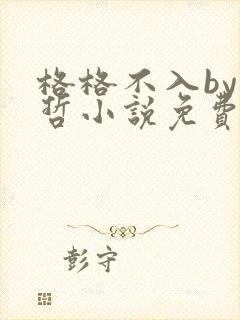 格格不入by
哲小說免費
彭守